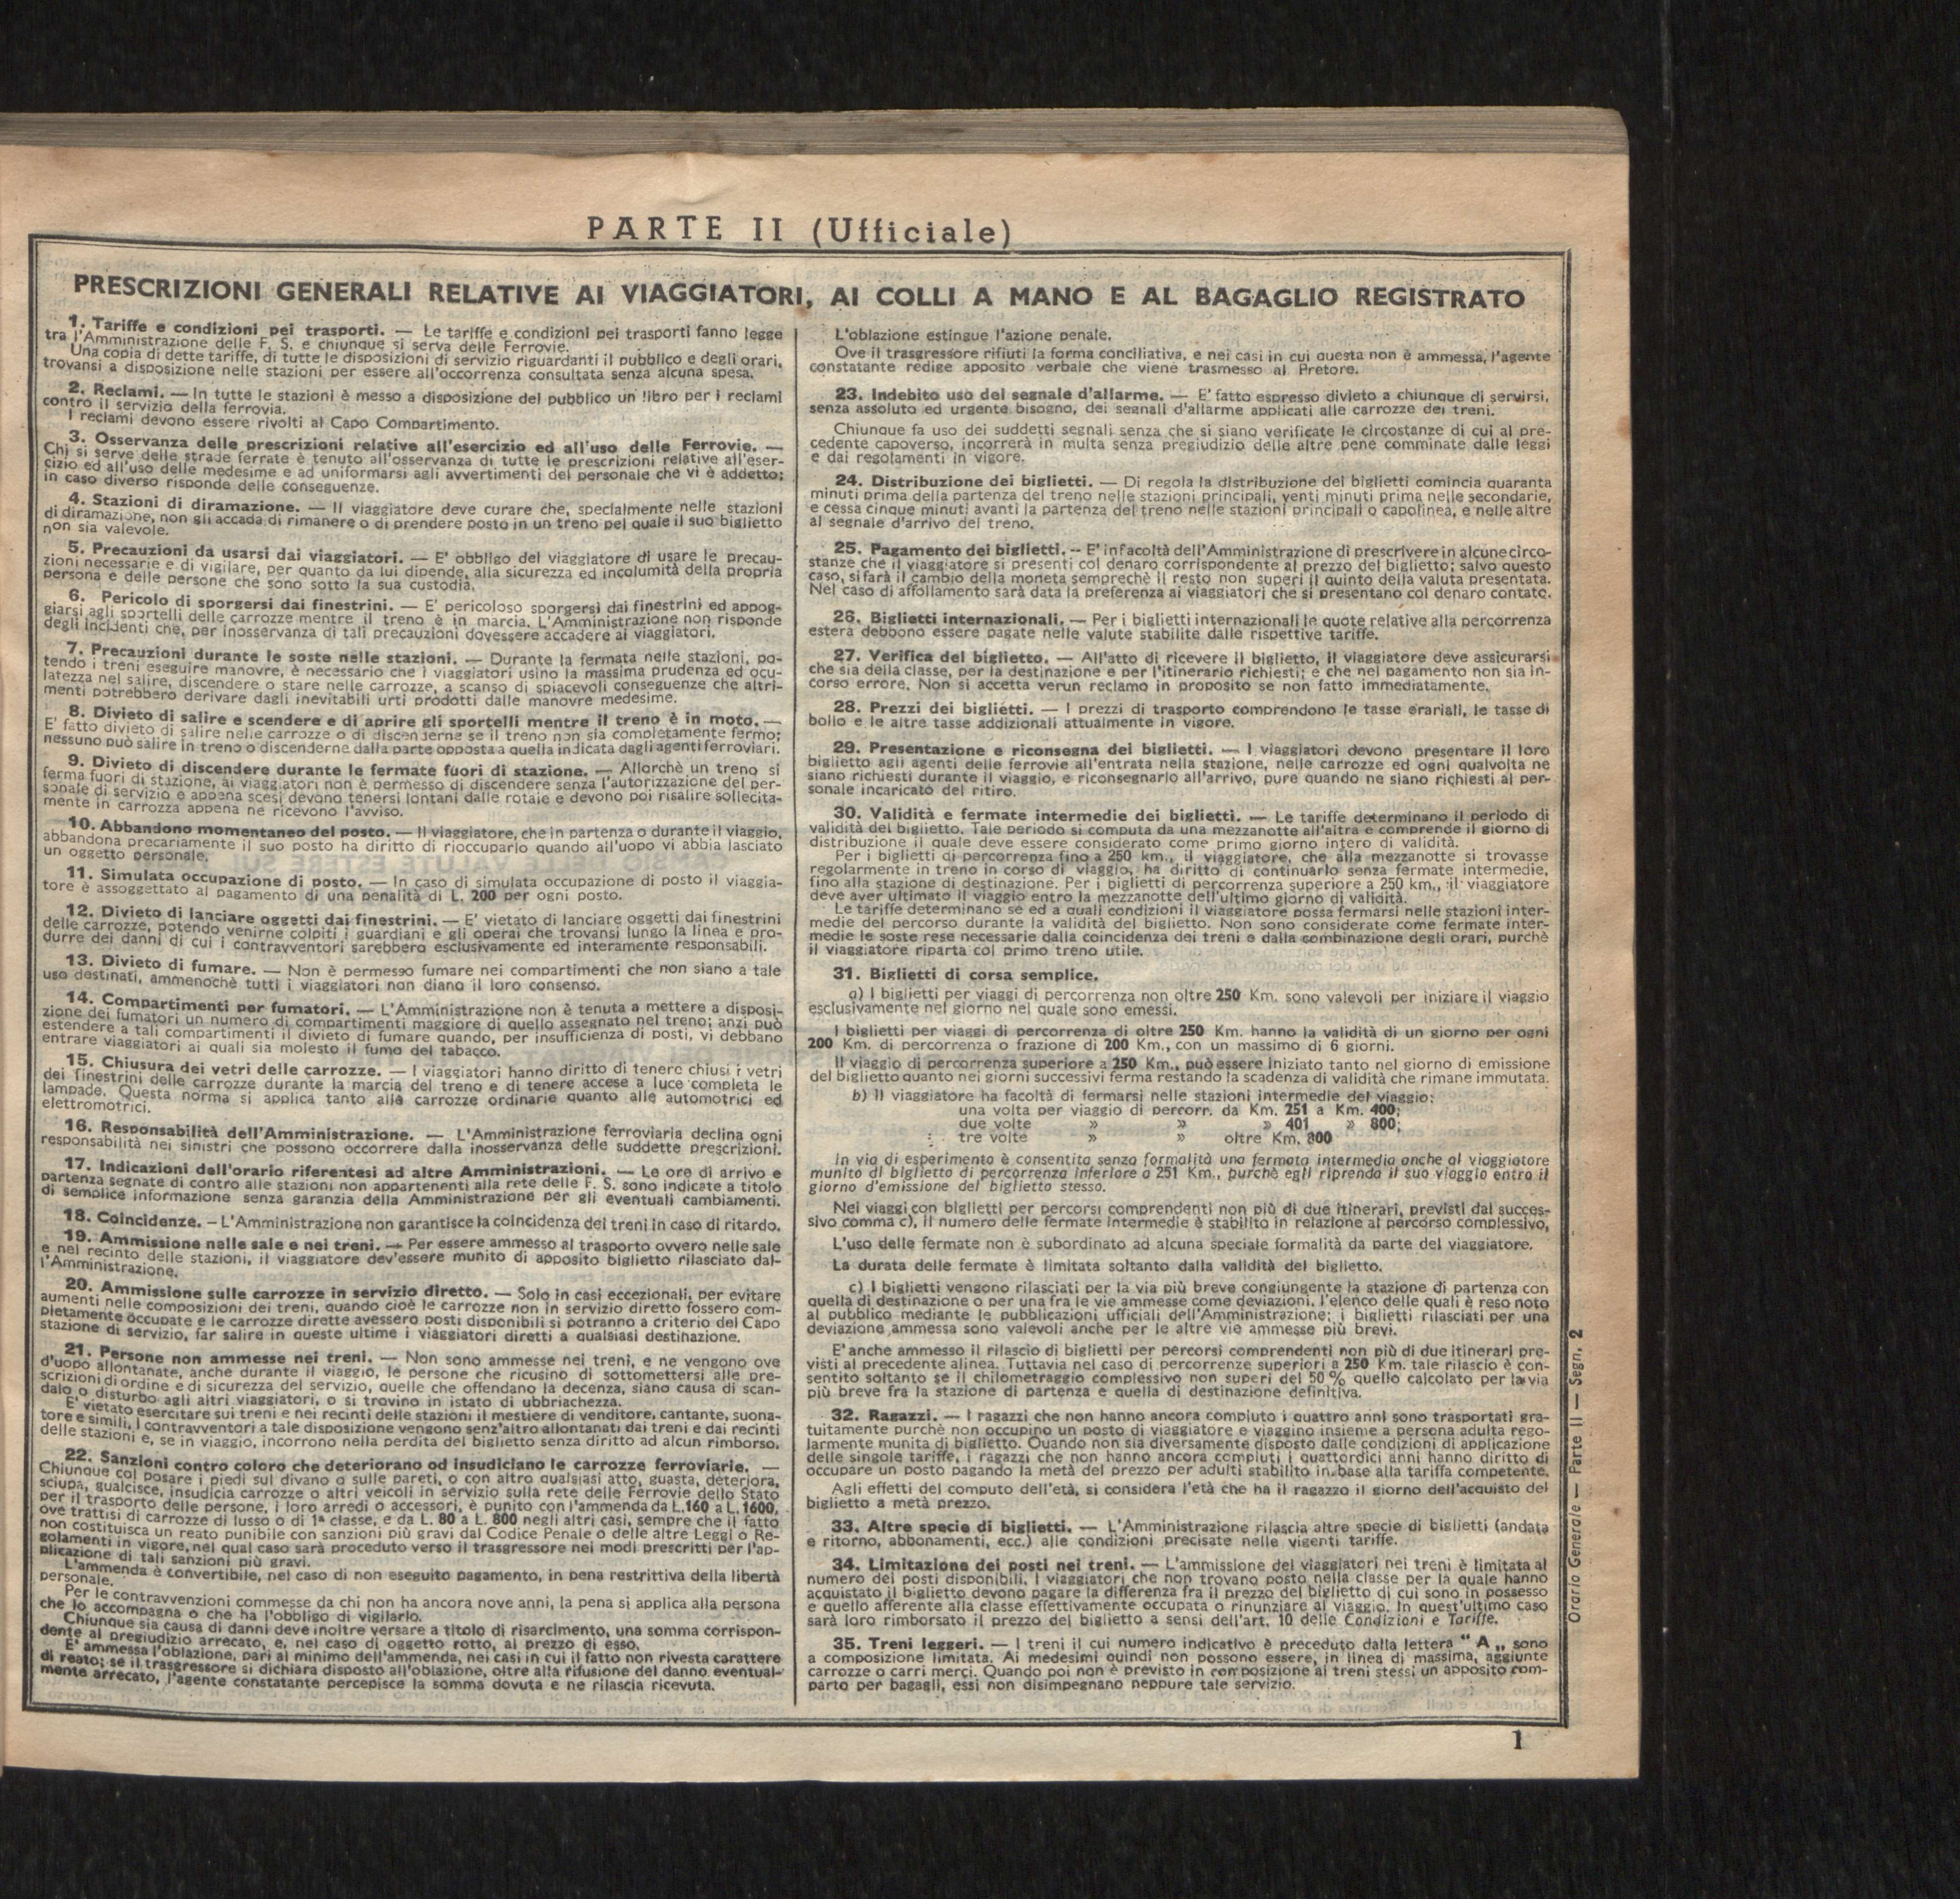 PARTE II (Ufficiale)
PRESCRIZIONI GENERALI RELATIVE AI VIAGGIATORI, AI COLLI A MANO E AL BAGAGLIO REGISTRATO
1. Tariffe e condizioni pei trasporti. — Le tariffe e condizioni pei trasporti fanno legge
tra l'Amministrazione delle F. S. e chiunque si serva delle Ferrovie.
Una copia di dette tariffe, di tutte le disposizioni di servizio riguardanti il pubblico e degli orari,
trovansi a disposizione nelle stazioni per essere all'occorrenza consultata senza alcuna spesa.
2. Reclami. — In tutte le stazioni è messo a disposizione del pubblico un libro per i reclami
contro il servizio della ferrovia.
I reclami devono essere rivolti al Capo Compartimento.
3. Osservanza delle prescrizioni relative all'esercizio ed all'uso delle Ferrovie. —
Chi si serve delle strade ferrate è tenuto all'osservanza di tutte le prescrizioni relative all'eser-
cizio ed all'uso delle medesime e ad uniformarsi agli avvertimenti del personale che vi è addetto;
in caso diverso risponde delle conseguenze.
4. Stazioni di diramazione. — Il viaggiatore deve curare che, specialmente nelle stazioni
di diramazione, non gli accada di rimanere o di prendere posto in un treno pel quale il suo biglietto
non sia valevole.
5. Precauzioni da usarsi dai viaggiatori. — E' obbligo del viaggiatore di usare le precau-
zioni necessarie e di vigilare, per quanto da lui dipende, alla sicurezza ed incolumità della propria
persona e delle persone che sono sotto la sua custodia.
6. Pericolo di sporgersi dai finestrini. — E' pericoloso sporgersi dai finestrini ed appog-
giarsi agli sportelli delle carrozze mentre il treno è in marcia. L'Amministrazione non risponde
degli incidenti che, per inosservanza di tali precauzioni dovessere accadere ai viaggiatori.
7. Precauzioni durante le soste nelle stazioni. — Durante la fermata nelle stazioni, po-
tendo i treni eseguire manovre, è necessario che i viaggiatori usino la massima prudenza ed ocu-
latezza nel salire, discendere o stare nelle carrozze, a scanso di spiacevoli conseguenze che altri-
menti potrebbero derivare dagli inevitabili urti prodotti dalle manovre medesime.
8. Divieto di salire e scendere e di aprire gli sportelli mentre il treno è in moto. —
E' fatto divieto di salire nelle carrozze o di discenderne se il treno non sia completamente fermo;
nessuno può salire in treno o discenderne dalla parte opposta a quella indicata dagli agenti ferroviari.
9. Divieto di discendere durante le fermate fuori di stazione. — Allorchè un treno si
ferma fuori di stazione, ai viaggiatori non è permesso di discendere senza l'autorizzazione del per-
sonale di servizio e appena scesi devono tenersi lontani dalle rotaie e devono poi risalire sollecita-
mente in carrozza appena ne ricevono l'avviso.
10. Abbandono momentaneo del posto. — Il viaggiatore, che in partenza o durante il viaggio,
abbandona precariamente il suo posto ha diritto di rioccuparlo quando all'uopo vi abbia lasciato
un oggetto personale.
11. Simulata occupazione di posto. — In caso di simulata occupazione di posto il viaggia-
tore è assoggettato al pagamento di una penalità di L. 200 per ogni posto.
12. Divieto di lanciare oggetti dai finestrini. — E' vietato di lanciare oggetti dai finestrini
delle carrozze, potendo venirne colpiti i guardiani e gli operai che trovansi lungo la linea e pro-
durre dei danni di cui i contravventori sarebbero esclusivamente ed interamente responsabili.
13. Divieto di fumare. — Non è permesso fumare nei compartimenti che non siano a tale
uso destinati, ammenochè tutti i viaggiatori non diano il loro consenso.
14. Compartimenti per fumatori. — L'Amministrazione non è tenuta a mettere a disposi-
zione dei fumatori un numero di compartimenti maggiore di quello assegnato nel treno; anzi può
estendere a tali compartimenti il divieto di fumare quando, per insufficienza di posti, vi debbano
entrare viaggiatori ai quali sia molesto il fumo del tabacco.
15. Chiusura dei vetri delle carrozze. — I viaggiatori hanno diritto di tenere chiusi i vetri
dei finestrini delle carrozze durante la marcia del treno e di tenere accese a luce completa le
lampade. Questa norma si applica tanto alle carrozze ordinarie quanto alle automotrici ed
elettromotrici.
16. Responsabilità dell'Amministrazione. — L'Amministrazione ferroviaria declina ogni
responsabilità nei sinistri che possono occorrere dalla inosservanza delle suddette prescrizioni.
17. Indicazioni dell'orario riferentesi ad altre Amministrazioni. — Le ore di arrivo e
partenza segnate di contro alle stazioni non appartenenti alla rete delle F. S. sono indicate a titolo
di semplice informazione senza garanzia della Amministrazione per gli eventuali cambiamenti.
18. Coincidenze. – L'Amministrazione non garantisce la coincidenza dei treni in caso di ritardo.
19. Ammissione nelle sale e nei treni. — Per essere ammesso al trasporto ovvero nelle sale
e nel recinto delle stazioni, il viaggiatore dev'essere munito di apposito biglietto rilasciato dal-
l'Amministrazione.
20. Ammissione sulle carrozze in servizio diretto. — Solo in casi eccezionali, per evitare
aumenti nelle composizioni dei treni, quando cioè le carrozze non in servizio diretto fossero com-
pletamente occupate e le carrozze dirette avessero posti disponibili si potranno a criterio del Capo
stazione di servizio, far salire in queste ultime i viaggiatori diretti a qualsiasi destinazione.
21. Persone non ammesse nei treni. — Non sono ammesse nei treni, e ne vengono ove
d'uopo allontanate, anche durante il viaggio, le persone che ricusino di sottomettersi alle pre-
scrizioni di ordine e di sicurezza del servizio, quelle che offendano la decenza, siano causa di scan-
dalo o disturbo agli altri viaggiatori, o si trovino in istato di ubbriachezza.
E' vietato esercitare sui treni e nei recinti delle stazioni il mestiere di venditore, cantante, suona-
tore e simili, I contravventori a tale disposizione vengono senz'altro allontanati dai treni e dai recinti
delle stazioni e, se in viaggio, incorrono nella perdita del biglietto senza diritto ad alcun rimborso.
22. Sanzioni contro coloro che deteriorano od insudiciano le carrozze ferroviarie. —
Chiunque col posare i piedi sul divano o sulle pareti, o con altro qualsiasi atto, guasta, deteriora,
sciupa, gualcisce, insudicia carrozze o altri veicoli in servizio sulla rete delle Ferrovie dello Stato
per il trasporto delle persone, i loro arredi o accessori, è punito con l'ammenda da L.160 a L. 1600,
ove trattisi di carrozze di lusso o di 1ª classe, e da L. 80 a L. 800 negli altri casi, sempre che il fatto
non costituisca un reato punibile con sanzioni più gravi dal Codice Penale o delle altre Leggi o Re-
golamenti in vigore, nel qual caso sarà proceduto verso il trasgressore nei modi prescritti per l'ap-
plicazione di tali sanzioni più gravi.
L'ammenda è convertibile, nel caso di non eseguito pagamento, in pena restrittiva della libertà
personale.
Per le contravvenzioni commesse da chi non ha ancora nove anni, la pena si applica alla persona
che lo accompagna o che ha l'obbligo di vigilarlo.
Chiunque sia causa di danni deve inoltre versare a titolo di risarcimento, una somma corrispon-
dente al pregiudizio arrecato, e, nel caso di oggetto rotto, al prezzo di esso.
E' ammessa l'oblazione, pari al minimo dell'ammenda, nei casi in cui il fatto non rivesta carattere
di reato; se il trasgressore si dichiara disposto all'oblazione, oltre alla rifusione del danno eventual-
mente arrecato, l'agente constatante percepisce la somma dovuta e ne rilascia ricevuta.
L'oblazione estingue l'azione penale.
Ove il trasgressore rifiuti la forma conciliativa, e nei casi in cui questa non è ammessa, l'agente
constatante redige apposito verbale che viene trasmesso al Pretore.
23. Indebito uso del segnale d'allarme. — E' fatto espresso divieto a chiunque di servirsi,
senza assoluto ed urgente bisogno, dei segnali d'allarme applicati alle carrozze dei treni.
Chiunque fa uso dei suddetti segnali senza che si siano verificate le circostanze di cui al pre-
cedente capoverso, incorrerà in multa senza pregiudizio delle altre pene comminate dalle leggi
e dai regolamenti in vigore.
24. Distribuzione dei biglietti. — Di regola la distribuzione dei biglietti comincia quaranta
minuti prima della partenza del treno nelle stazioni principali, venti minuti prima nelle secondarie,
e cessa cinque minuti avanti la partenza del treno nelle stazioni principali o capolinea, e nelle altre
al segnale d'arrivo del treno.
25. Pagamento dei biglietti. -- E' in facoltà dell'Amministrazione di prescrivere in alcune circo-
stanze che il viaggiatore si presenti col denaro corrispondente al prezzo del biglietto; salvo questo
caso, si farà il cambio della moneta semprechè il resto non superi il quinto della valuta presentata.
Nel caso di affollamento sarà data la preferenza ai viaggiatori che si presentano col denaro contato.
26. Biglietti internazionali. — Per i biglietti internazionali le quote relative alla percorrenza
estera debbono essere pagate nelle valute stabilite dalle rispettive tariffe.
27. Verifica del biglietto. — All'atto di ricevere il biglietto, il viaggiatore deve assicurarsi
che sia della classe, per la destinazione e per l'itinerario richiesti; e che nel pagamento non sia in-
corso errore. Non si accetta verun reclamo in proposito se non fatto immediatamente.
28. Prezzi dei biglietti. — I prezzi di trasporto comprendono le tasse erariali, le tasse di
bollo e le altre tasse addizionali attualmente in vigore.
29. Presentazione e riconsegna dei biglietti. — I viaggiatori devono presentare il loro
biglietto agli agenti delle ferrovie all'entrata nella stazione, nelle carrozze ed ogni qualvolta ne
siano richiesti durante il viaggio, e riconsegnarlo all'arrivo, pure quando ne siano richiesti al per-
sonale incaricato del ritiro.
30. Validità e fermate intermedie dei biglietti. — Le tariffe determinano il periodo di
validità del biglietto. Tale periodo si computa da una mezzanotte all'altra e comprende il giorno di
distribuzione il quale deve essere considerato come primo giorno intero di validità.
Per i biglietti di percorrenza fino a 250 km., il viaggiatore, che alla mezzanotte si trovasse
regolarmente in treno in corso di viaggio, ha diritto di continuarlo senza fermate intermedie,
fino alla stazione di destinazione. Per i biglietti di percorrenza superiore a 250 km., il viaggiatore
deve aver ultimato il viaggio entro la mezzanotte dell'ultimo giorno di validità.
Le tariffe determinano se ed a quali condizioni il viaggiatore possa fermarsi nelle stazioni inter-
medie del percorso durante la validità del biglietto. Non sono considerate come fermate inter-
medie le soste rese necessarie dalla coincidenza dei treni e dalla combinazione degli orari, purchè
il viaggiatore riparta col primo treno utile.
31. Biglietti di corsa semplice.
a) I biglietti per viaggi di percorrenza non oltre 250 Km. sono valevoli per iniziare il viaggio
esclusivamente nel giorno nel quale sono emessi.
I biglietti per viaggi di percorrenza di oltre 250 Km. hanno la validità di un giorno per ogni
200 Km. di percorrenza o frazione di 200 Km., con un massimo di 6 giorni.
Il viaggio di percorrenza superiore a 250 Km., può essere iniziato tanto nel giorno di emissione
del biglietto quanto nei giorni successivi ferma restando la scadenza di validità che rimane immutata.
b) Il viaggiatore ha facoltà di fermarsi nelle stazioni intermedie del viaggio:
una volta per viaggio di percorr. da Km. 251 a Km. 400;
due volte » » » 401 » 800;
tre volte » » oltre Km. 800
In via di esperimento è consentita senza formalità una fermata intermedia anche al viaggiatore
munito di biglietto di percorrenza inferiore a 251 Km., purchè egli riprenda il suo viaggio entro il
giorno d'emissione del biglietto stesso.
Nei viaggi con biglietti per percorsi comprendenti non più di due itinerari, previsti dal succes-
sivo comma c), il numero delle fermate intermedie è stabilito in relazione al percorso complessivo,
L'uso delle fermate non è subordinato ad alcuna speciale formalità da parte del viaggiatore.
La durata delle fermate è limitata soltanto dalla validità del biglietto.
c) I biglietti vengono rilasciati per la via più breve congiungente la stazione di partenza con
quella di destinazione o per una fra le vie ammesse come deviazioni, l'elenco delle quali è reso noto
al pubblico mediante le pubblicazioni ufficiali dell'Amministrazione; i biglietti rilasciati per una
deviazione ammessa sono valevoli anche per le altre vie ammesse più brevi.
E' anche ammesso il rilascio di biglietti per percorsi comprendenti non più di due itinerari pre-
visti al precedente alinea. Tuttavia nel caso di percorrenze superiori a 250 Km. tale rilascio è con-
sentito soltanto se il chilometraggio complessivo non superi del 50 % quello calcolato per la via
più breve fra la stazione di partenza e quella di destinazione definitiva.
32. Ragazzi. — I ragazzi che non hanno ancora compiuto i quattro anni sono trasportati gra-
tuitamente purchè non occupino un posto di viaggiatore e viaggino insieme a persona adulta rego-
larmente munita di biglietto. Quando non sia diversamente disposto dalle condizioni di applicazione
delle singole tariffe, i ragazzi che non hanno ancora compiuti i quattordici anni hanno diritto di
occupare un posto pagando la metà del prezzo per adulti stabilito in base alla tariffa competente.
Agli effetti del computo dell'età, si considera l'età che ha il ragazzo il giorno dell'acquisto del
biglietto a metà prezzo.
33. Altre specie di biglietti. — L'Amministrazione rilascia altre specie di biglietti (andata
e ritorno, abbonamenti, ecc.) alle condizioni precisate nelle vigenti tariffe.
34. Limitazione dei posti nei treni. — L'ammissione dei viaggiatori nei treni è limitata al
numero dei posti disponibili. I viaggiatori che non trovano posto nella classe per la quale hanno
acquistato il biglietto devono pagare la differenza fra il prezzo del biglietto di cui sono in possesso
e quello afferente alla classe effettivamente occupata o rinunziare al viaggio. In quest'ultimo caso
sarà loro rimborsato il prezzo del biglietto a sensi dell'art. 10 delle Condizioni e Tariffe.
35. Treni leggeri. — I treni il cui numero indicativo è preceduto dalla lettera " A „ sono
a composizione limitata. Ai medesimi quindi non possono essere, in linea di massima, aggiunte
carrozze o carri merci. Quando poi non è previsto in composizione ai treni stessi un apposito com-
parto per bagagli, essi non disimpegnano neppure tale servizio.
Orario Generale — Parte II — Segn. 2
1